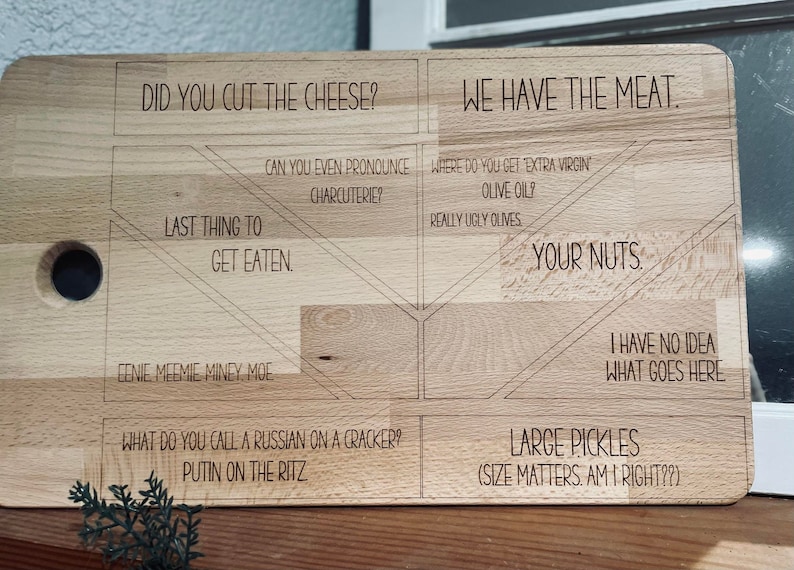 DID YOU CUT THE CHEESE?
WE HAVE THE MEAT.
CAN YOU EVEN PRONOUNCE
CHARCUTERIE?
WHERE DO YOU GET 'EXTRA VIRGIN'
OLIVE OIL?
REALLY UGLY OLIVES.
LAST THING TO
GET EATEN.
YOUR NUTS.
EENIE, MEEMIE, MINEY, MOE.
I HAVE NO IDEA
WHAT GOES HERE
WHAT DO YOU CALL A RUSSIAN ON A CRACKER?
PUTIN ON THE RITZ.
LARGE PICKLES
(SIZE MATTERS. AM I RIGHT??)